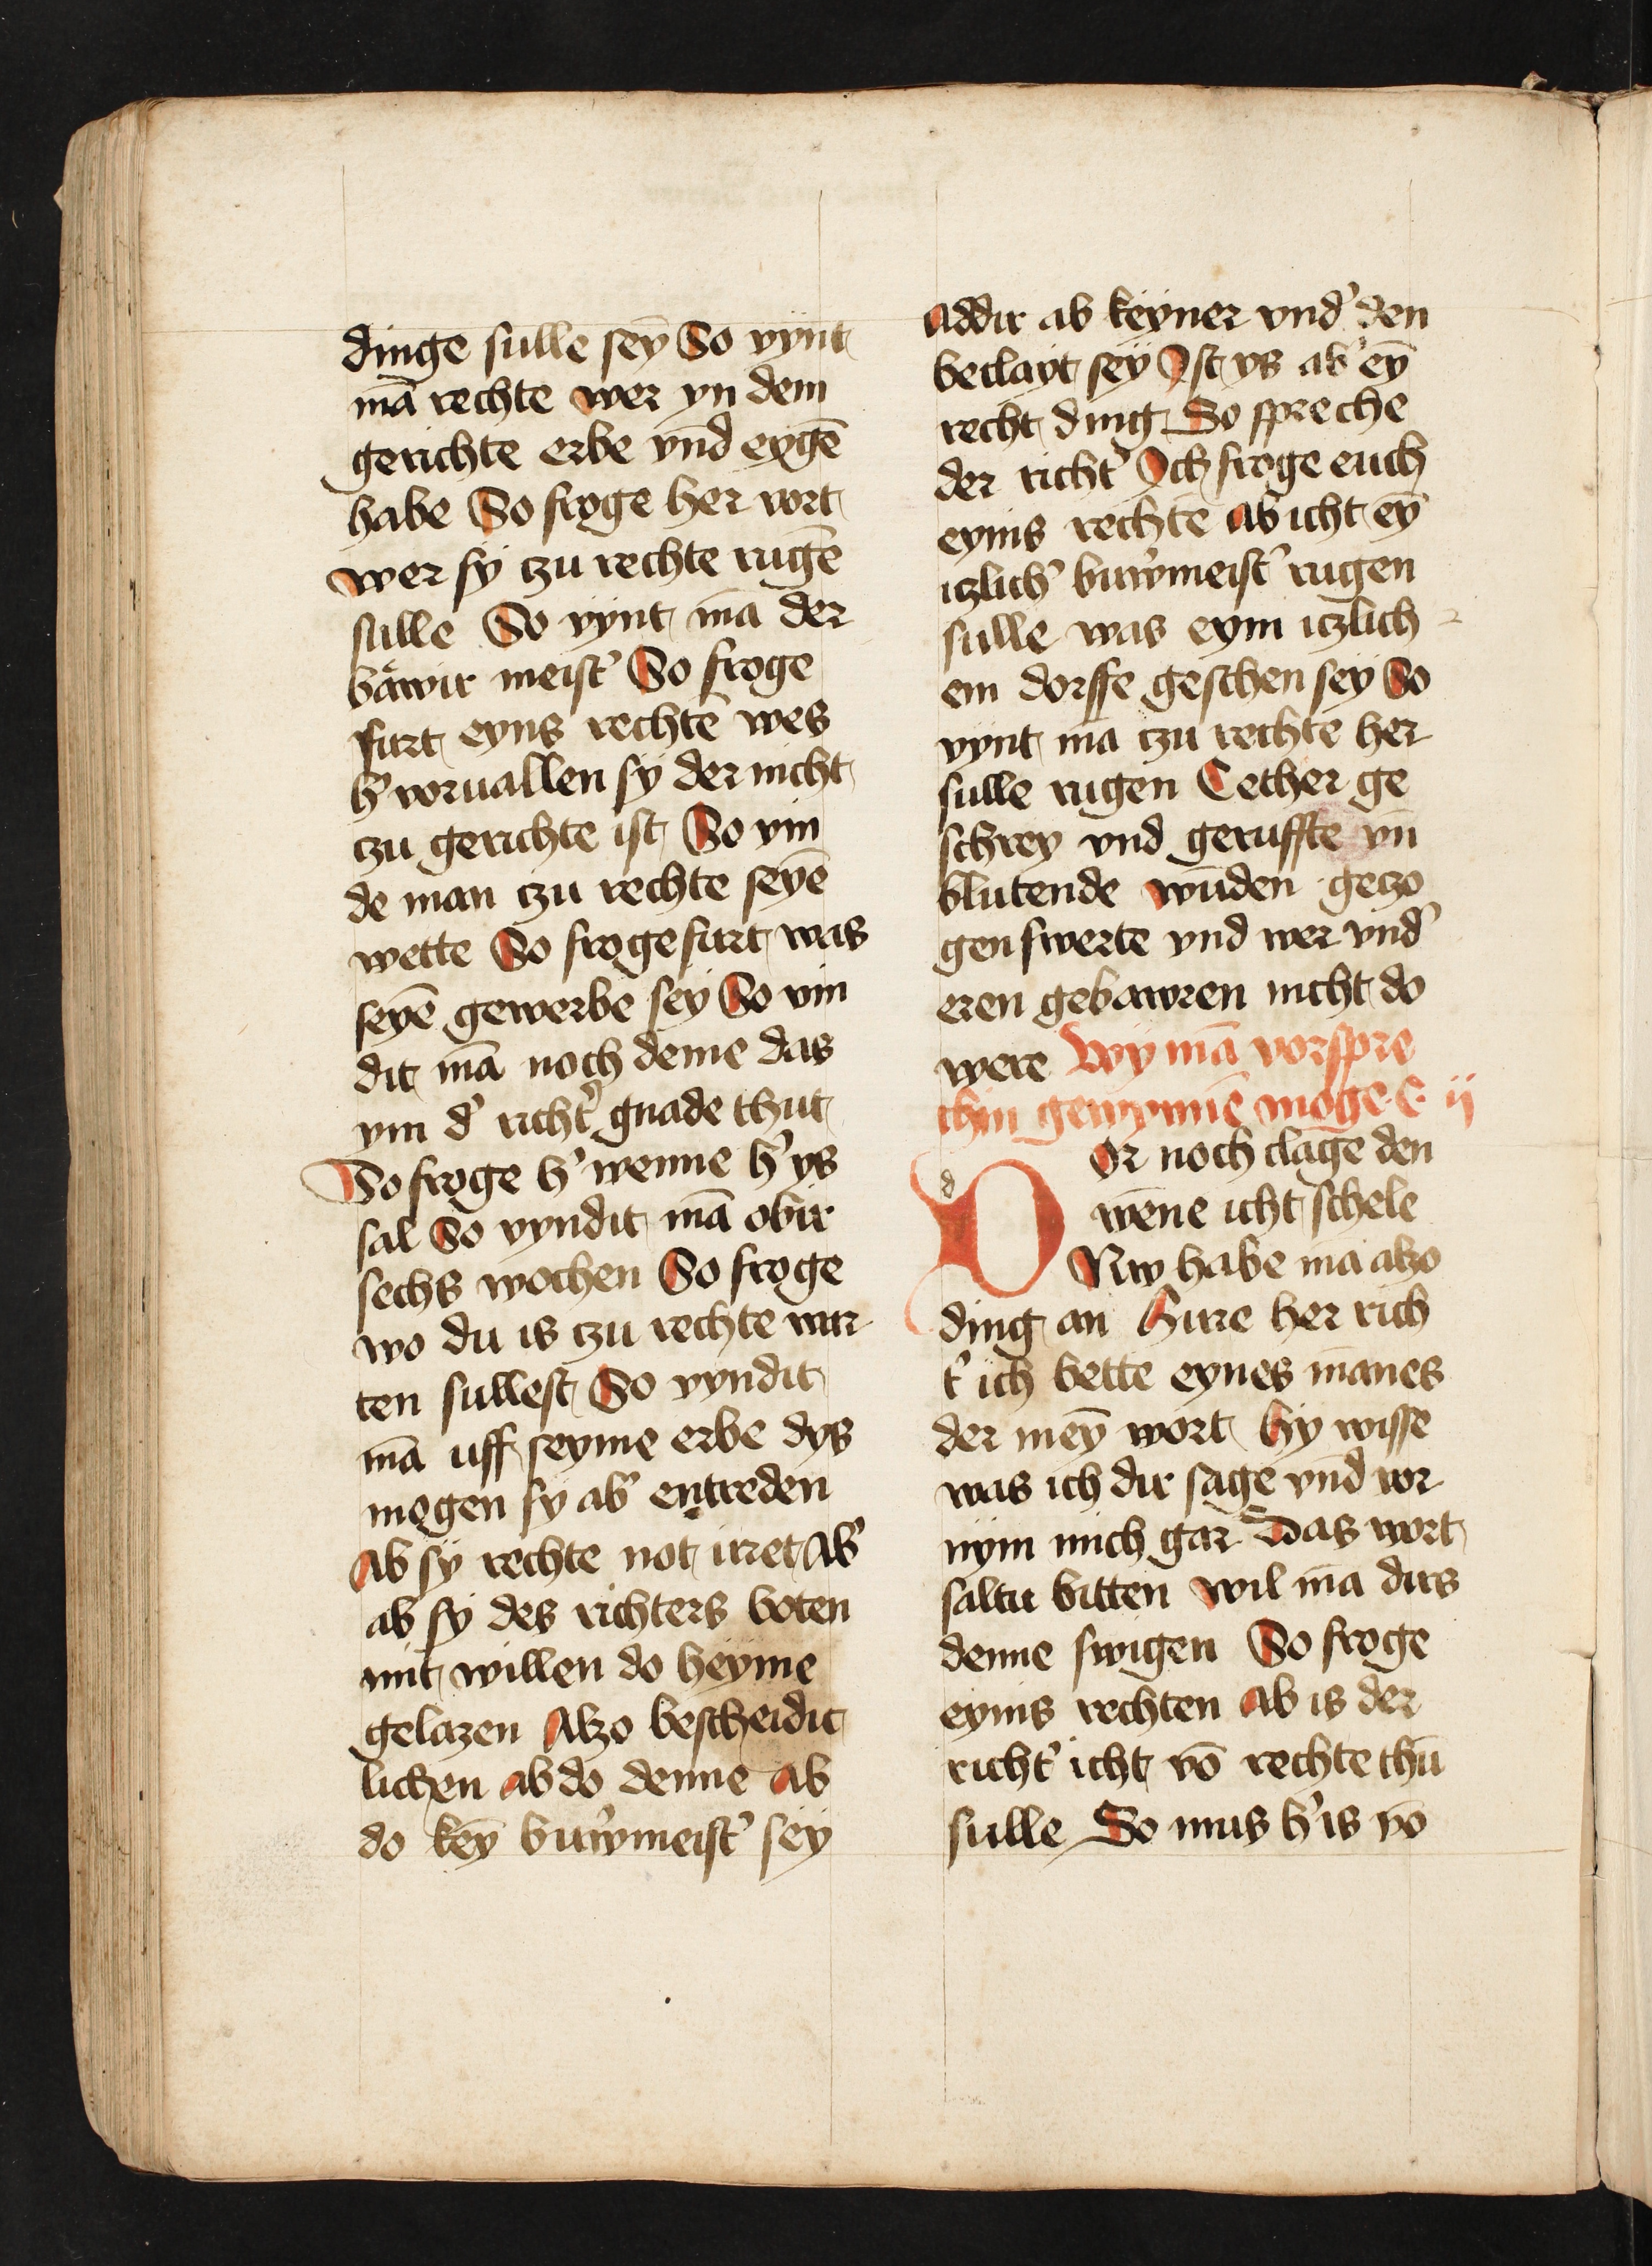 dinge sulle sey̅ So vynt
ma̅ rechte wer yn dem
gerichte erbe vn̅d eyge̅
habe So froge her vort
wer sy czu rechte ruge̅
sulle So vynt ma̅ der
bawir meist' So froge
furt eyns rechte̅ wes
h' voruallen sy der nicht
czu gerichte ist So vin
de man czu rechte seye̅
wette So froge furt was
seye̅ gewerbe sey So vin
dit ma̅ noch deme das
ym d' richt' gnade thut
So froge h' wenne h' ys
sal So vyndit ma̅ obir
sechs wochen So froge
wo du is czu rechte war
ten sullest So vyndit
ma̅ uff seyme erbe dys
mogen sy ab' entreden
Ab sy rechte not irret Ab'
ab sy des richters boten
mit willen do heyme
gelazen Alzo bescheidit
lichen ab do denne Ab
do key̅ buwmeist' sey
Addir ab keyner vnd' den
beclayt sey Ist ys ab' ey̅
recht ding So spreche
der richt' Ich froge euch
eynis rechte̅ Ab icht ey̅
iczlich' buwmeist' rugen
sulle was eym iczlich
em dorffe geschen sey So
vynt ma̅ czu rechte her
sulle rugen Cether ge
schrey vnd geruffte vn̅
blutende wu̅den geczo
gen swerte vnd wer vnd'
eren gebawren nicht do
were Wy ma̅ vorspre
chin gewynne̅ moge c ij
d Or noch clage den
we̅ne icht schele
Nw habe ma̅ alzo
ding an Hirre her rich
t' ich bette eynes ma̅nes
der mey̅ wort hy wisse
was ich dir sage vnd vor
nym mich gar Das wort
saltu bitten wil ma̅ dirs
denne swigen So froge
eynis rechten Ab is der
richt' icht vo̅ rechte thu̅
sulle So mus h' is vo̅